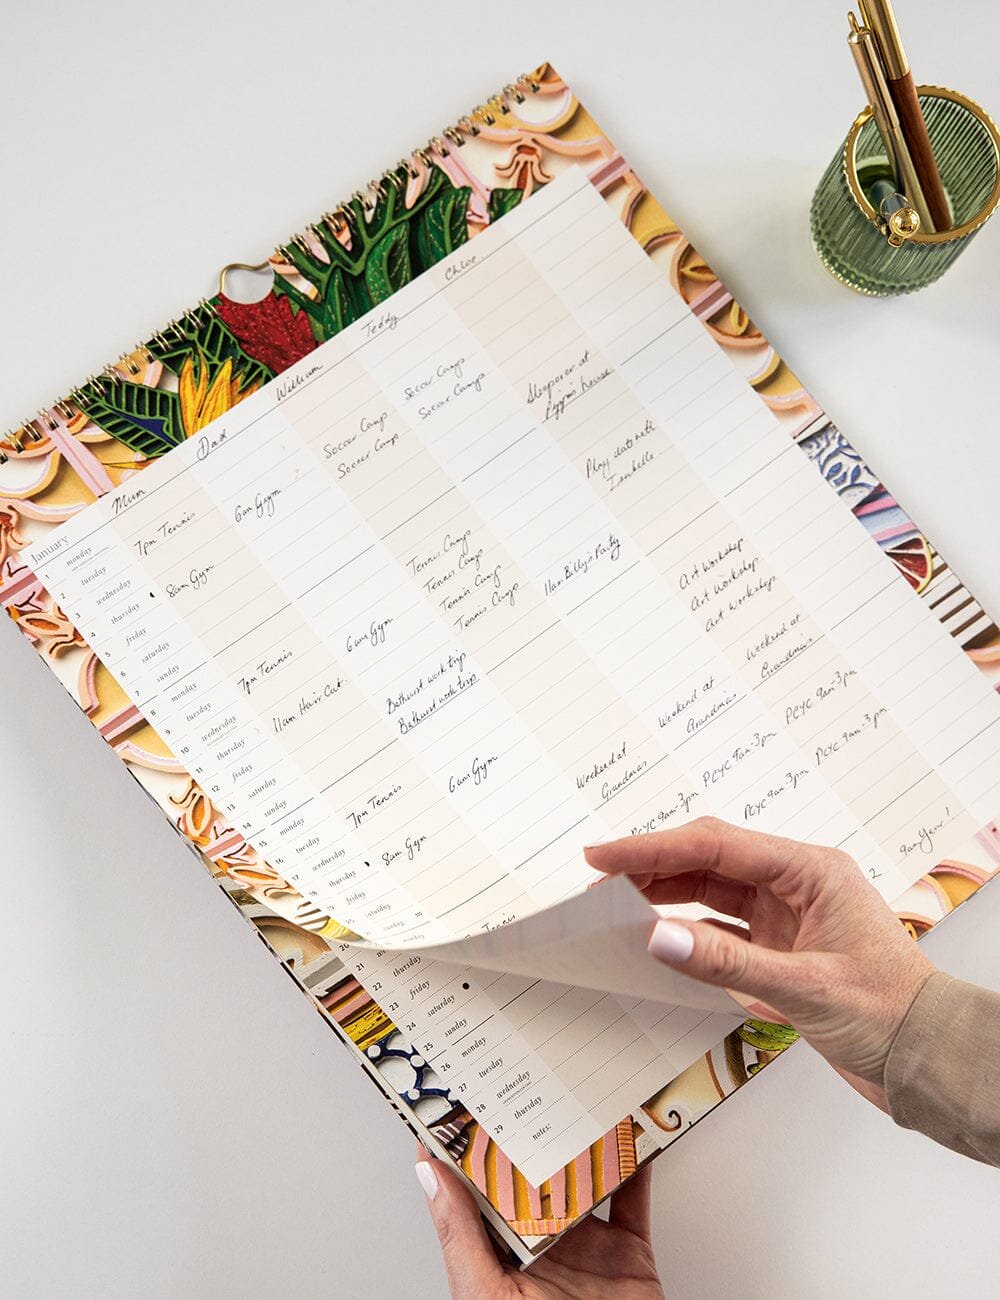 January
Mum
Dad
William
Teddy
Chloe
1 monday
2 tuesday
3 wednesday
4 thursday
5 friday
6 saturday
7 sunday
8 monday
9 tuesday
10 wednesday
11 thursday
12 friday
13 saturday
14 sunday
15 monday
16 tuesday
17 wednesday
18 thursday
19 friday
saturday
sunday
7pm Tennis
8am Gym
7pm Tennis
11am Hair Cut.
7pm Tennis
8am Gym
6am Gym
6am Gym
Bathurst work trip
Bathurst work trip
6am Gym
Soccer Camp
Soccer Camp
Tennis Camp
Tennis Camp
Tennis Camp
Tennis Camp
Weekend at
Grandmas
PCYC 9am-3pm
Soccer Camp
Soccer Camp
11am Billy's Party
Weekend at
Grandmas
PCYC 9am-3pm
PCYC 9am-3pm
2
Sleepover at
Pippa's house.
Play date with
Isabelle.
Art Workshop
Art Workshop
Art Workshop
Weekend at
Grandmas
PCYC 9am-3pm
PCYC 9am-3pm
Year!
Tennis
20
21
22 thursday
23 friday
24 saturday
25 sunday
26 monday
27 tuesday
28 wednesday
29 thursday
notes: